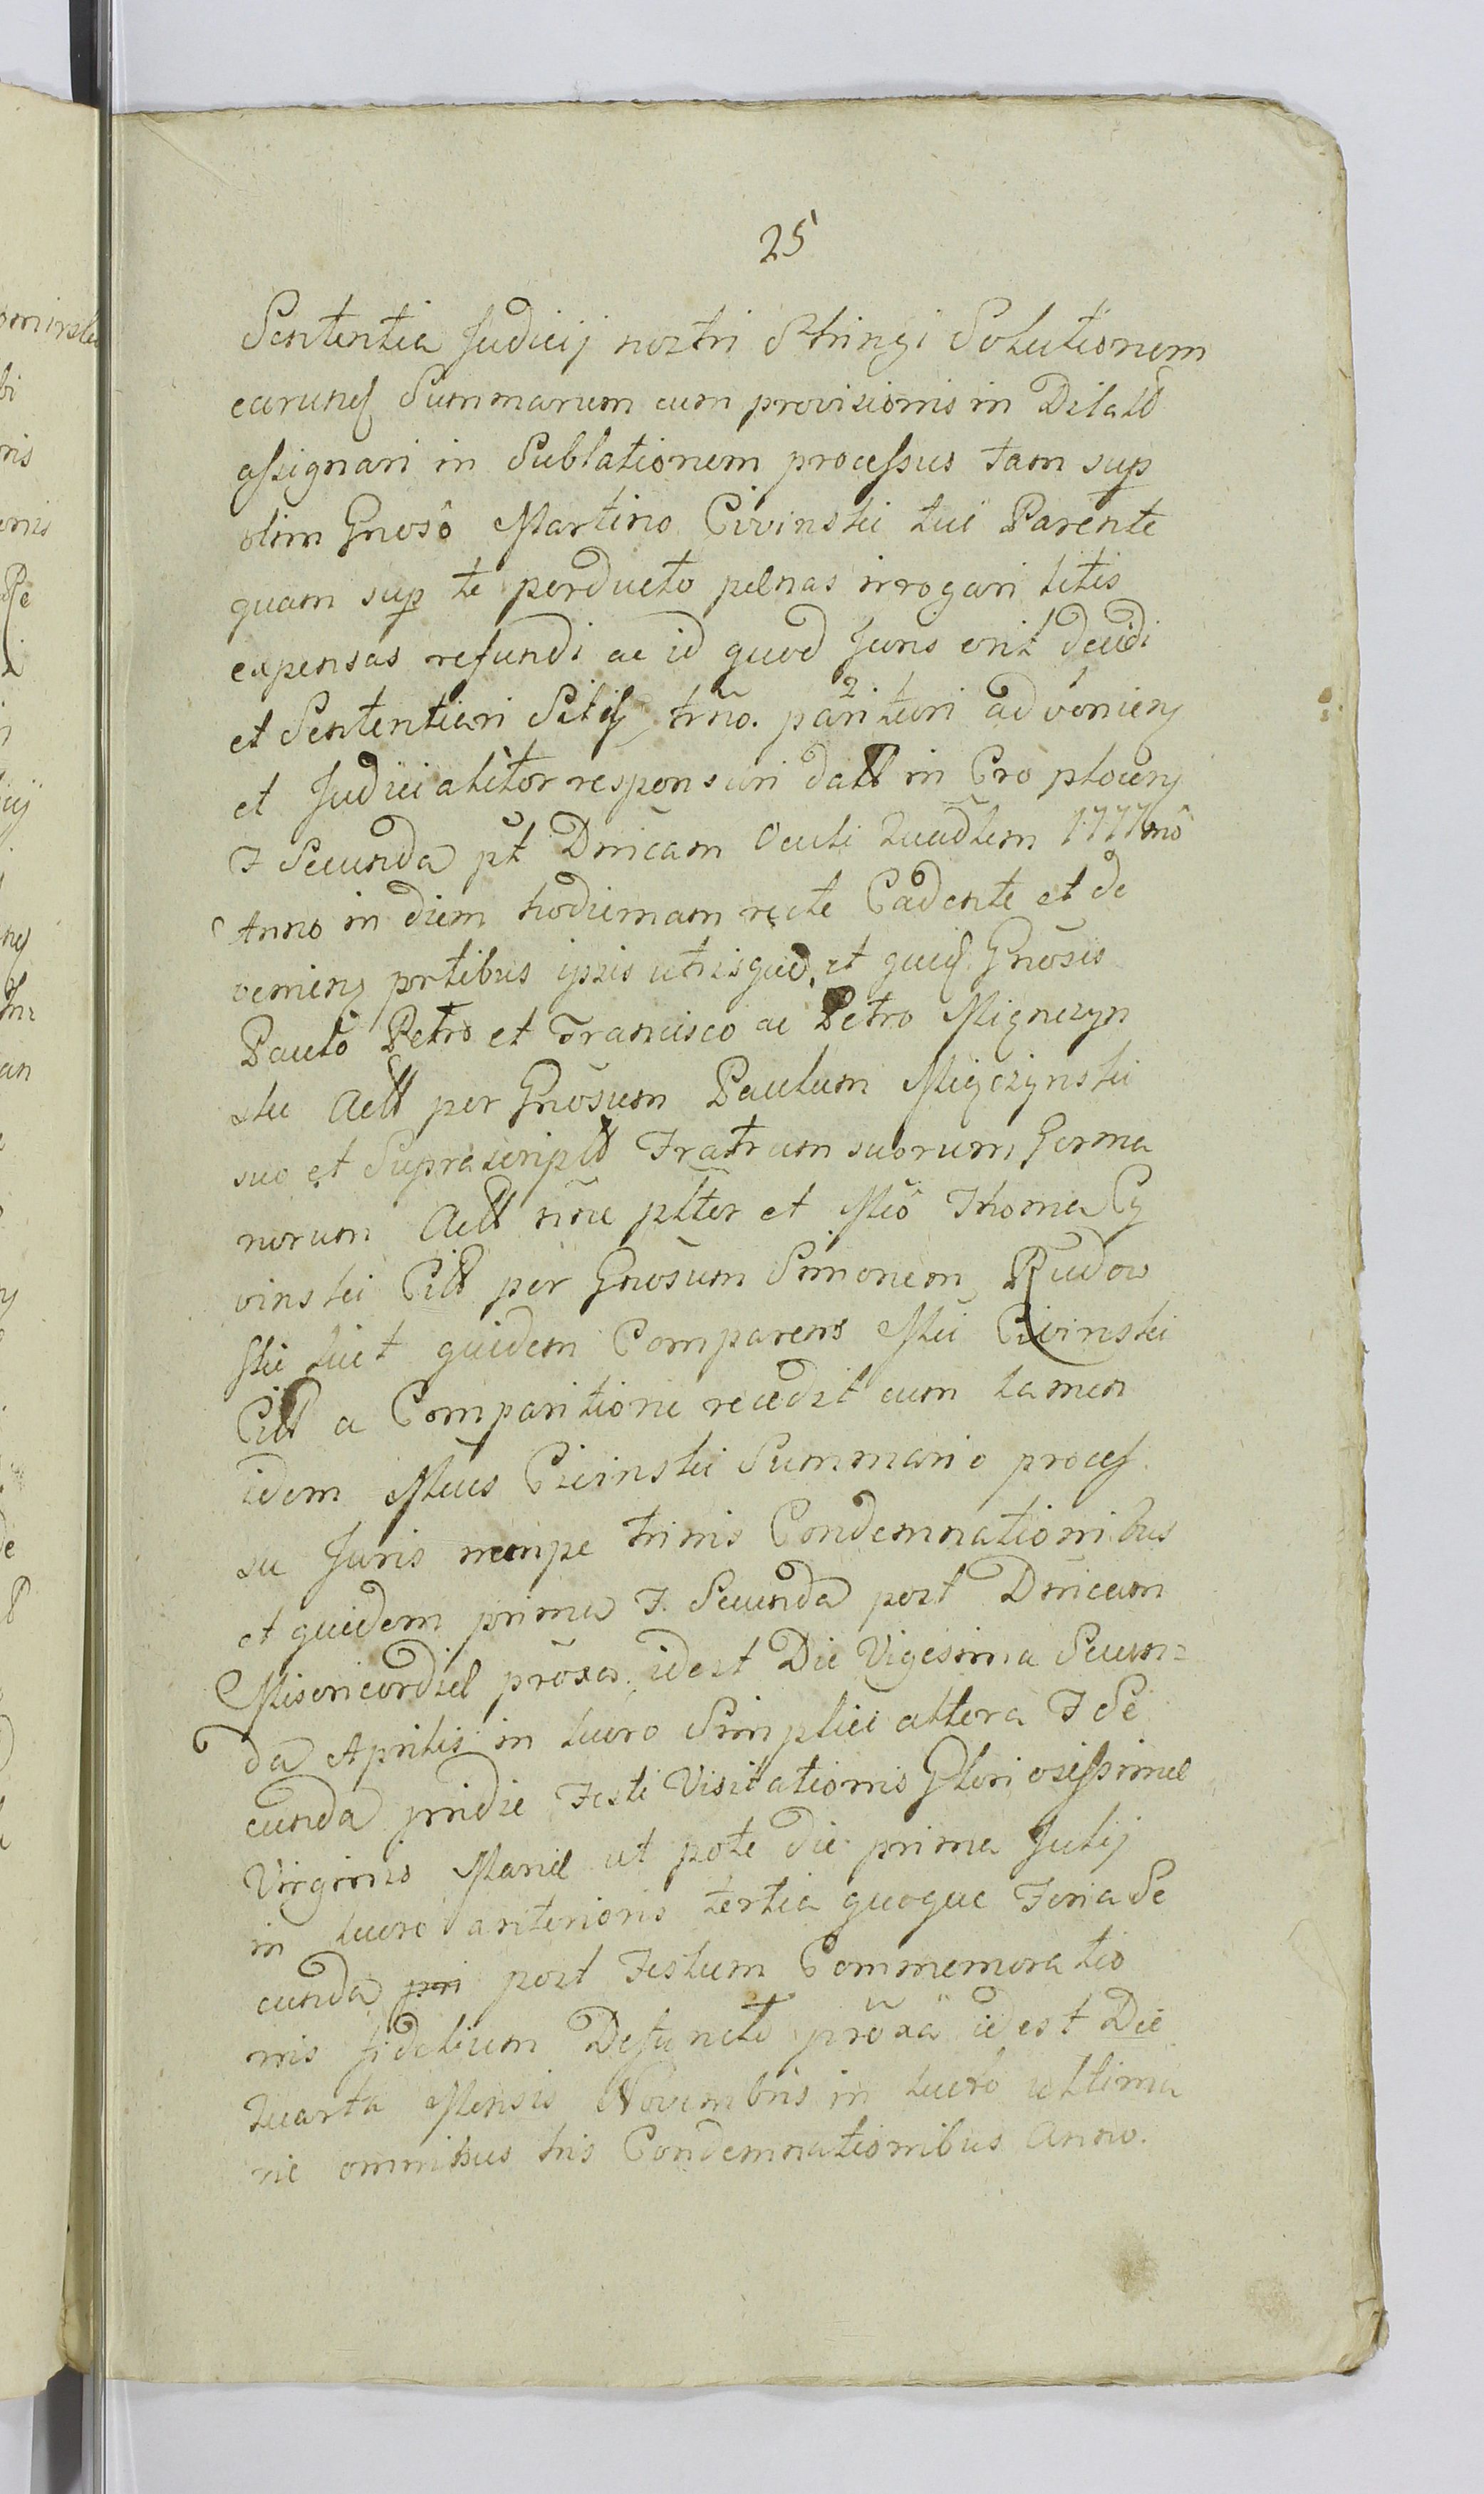 25
Sententia Judicij nostri Stringi Solutionem
earund Summarum cum provisionis in Dilatt
assignari in Sublationem processus tam sup
olim Gnosô Martino Civinski tui Parente
quam sup te perducto pænas irrogari litis
expensas refundi ac id quod Juris erit decidi
et Sententiari Sitis trño. 2. parituri ad veniens
et Judicialiter responsuri datt in Cro plociens
F Secunda pt Dnicam Oculi Quadlem 1777mô
Anno in diem hodiernam recte Cadente et de
veniens prtibus ipsis utrisque et quid Gnosis
Paulô Petro et Francisco ac Petro Mignczyn
ski Actt per Gnosum Paulum Migczynski
suo et Suprascriptt Fratrum suorum Germa
norum Actt nñe pltter et Mcô Thoma Cy
vinski Citt per Gnosum Simonem Rudow
ski licet quidem Comparens Mci Civinski
Citt a Comparitione recedit cum tamen
idem Mcus Civinski Summario proces
su Juris nempe trinis Condemnationibus
et quidem prima F. Secunda post Dnicam
Misericordiæ prõxa. idest Die Vigesima Secun=
da Aprilis in lucro Simplici altera F Se
cunda pridie Festi Visitationis Gloriosissimæ
Virginis Mariæ ut pote die prima Julij
in lucro anterioris tertia quoque Feria Se
cunda post Festum Commemoratio
nis fidelium Defunctt prõxa idest Die
Quarta Mensis Novembris in lucro ultima
rie omnibus his Condemnationibus Anno.